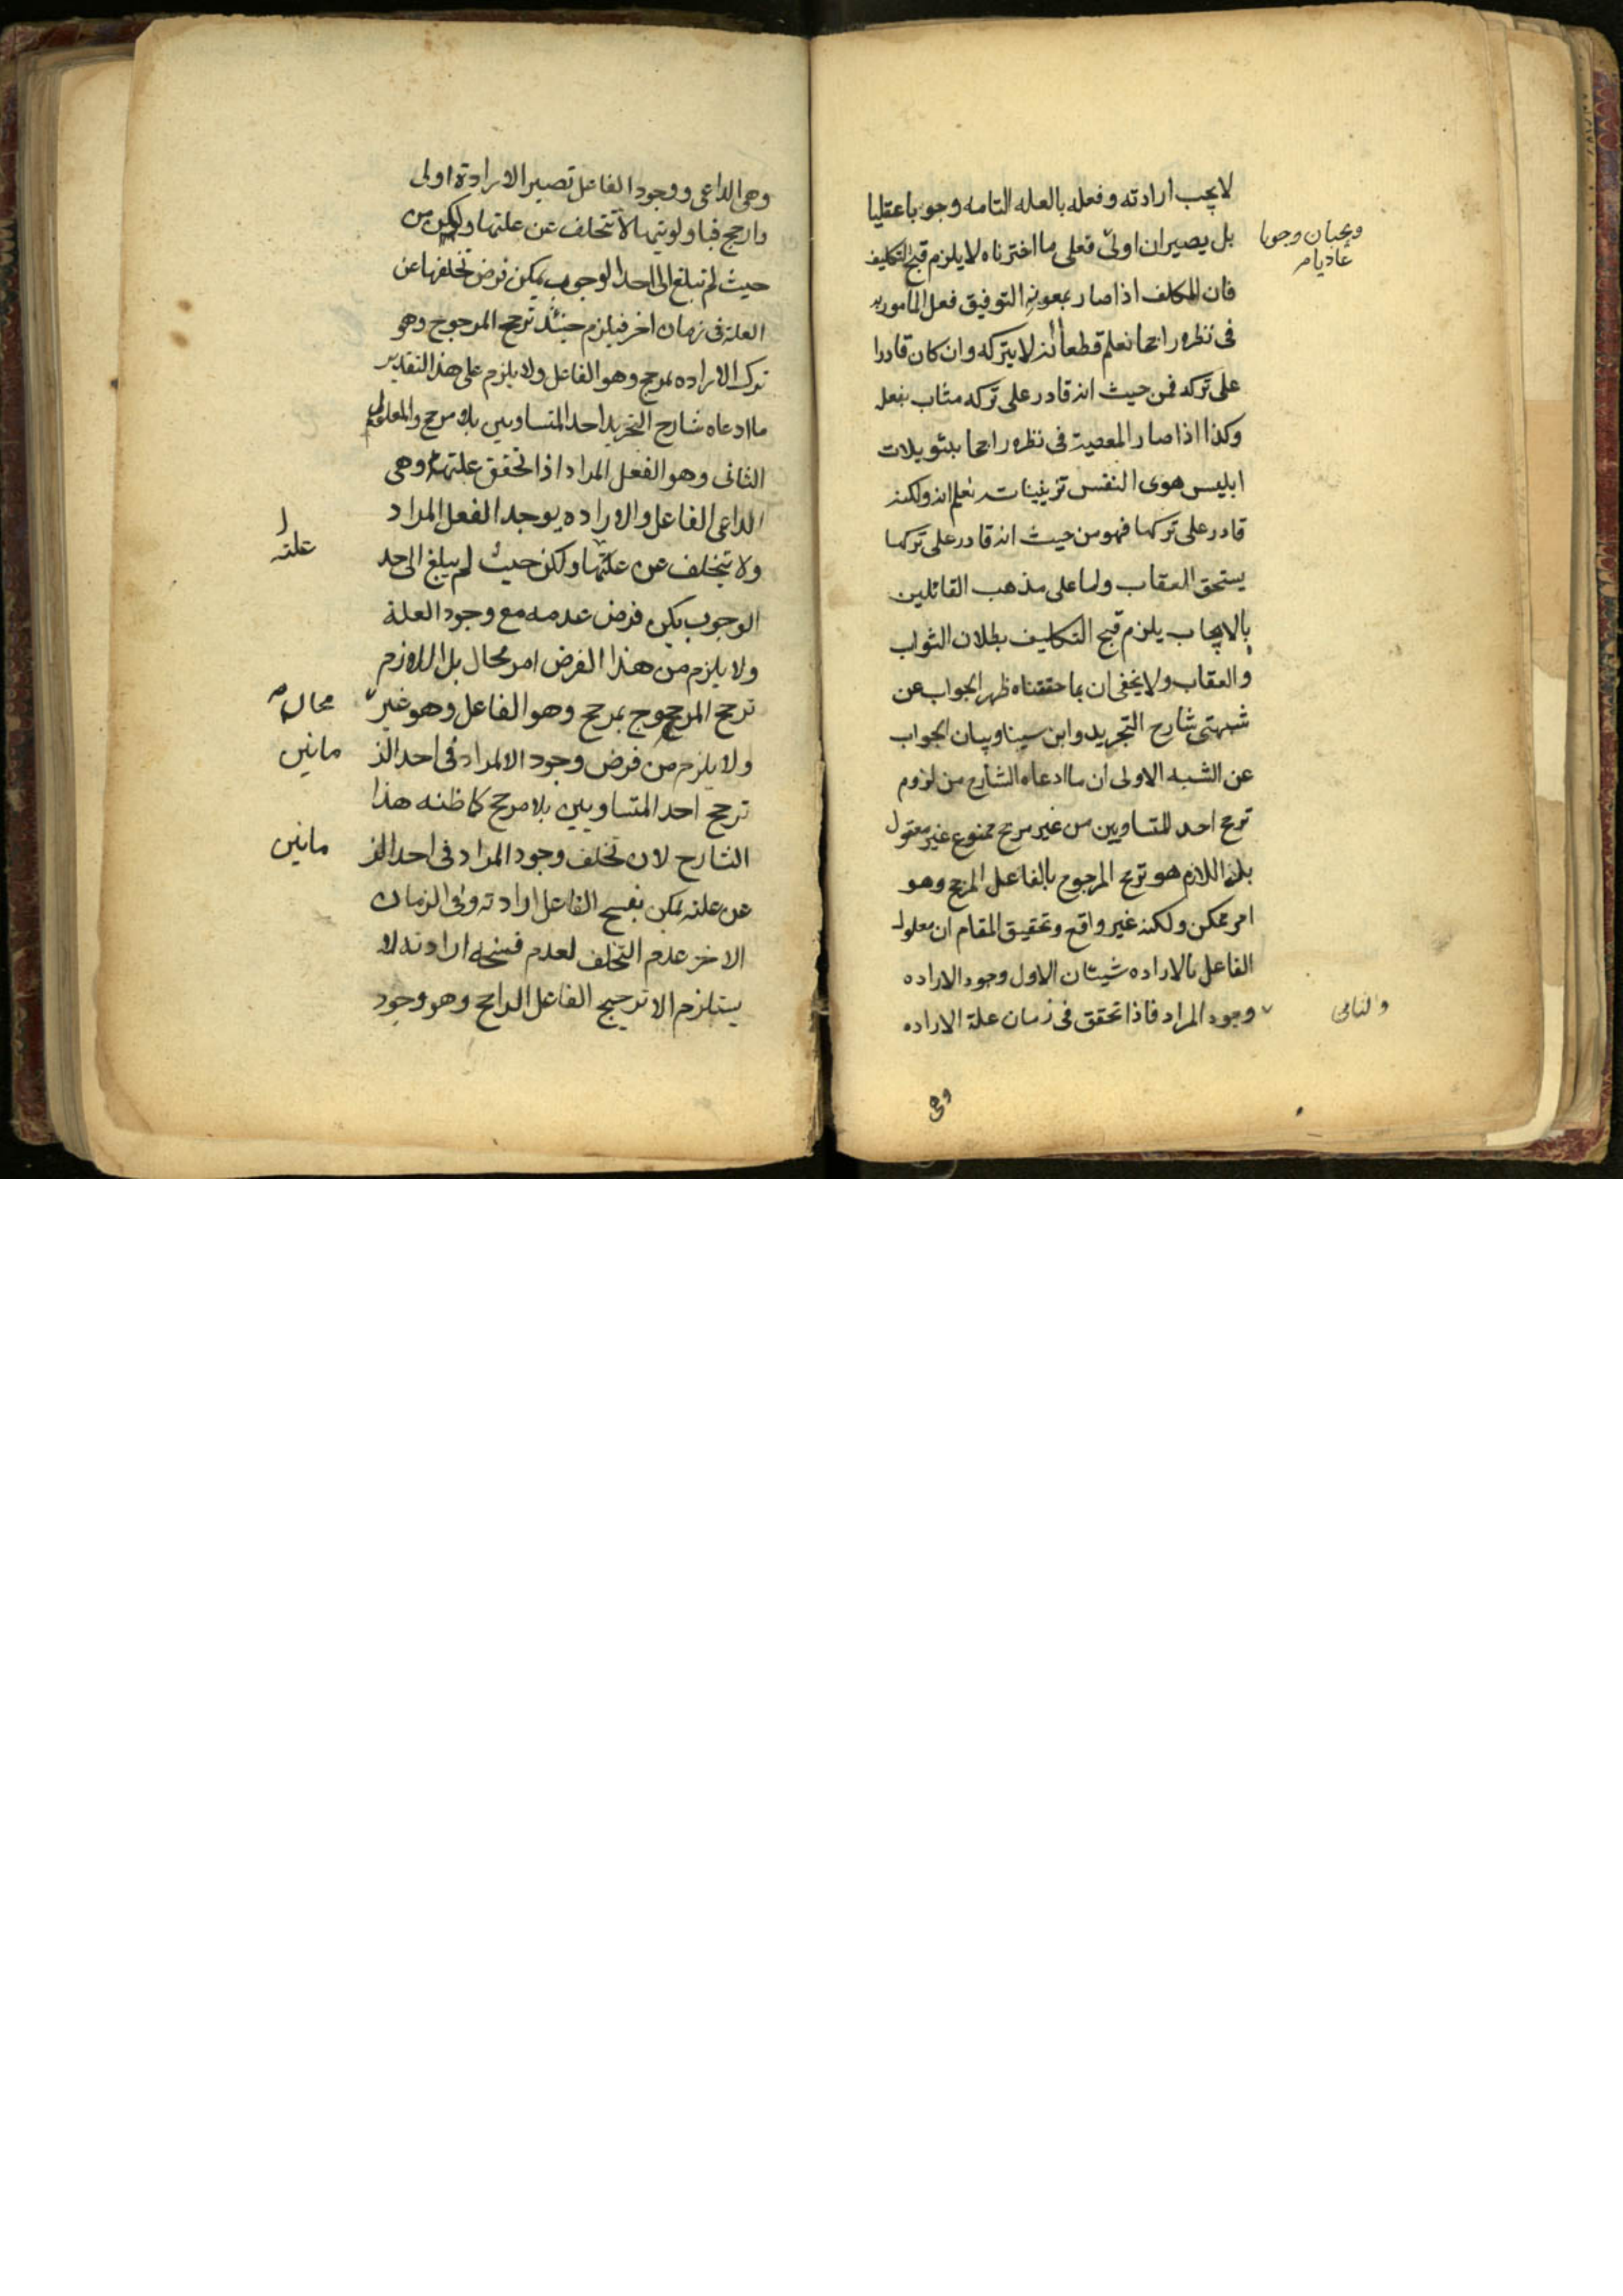 لا يجب ارادته وفعله بالعله التامه وجوبا عقليا
بل يصيران اولى فعلى ما اخترناه لا يلزم قبح التكليف
ويجبان وجوبا
عاديا م
فان المكلف اذا صار بمعونة التوفيق فعل المأمور به
فى نظره راجحا نعلم قطعا انه لا يتركه وان كان قادرا
على تركه فمن حيث انه قادر على تركه مثاب بفعل
وكذا اذا صار المعصية فى نظره راجحا بتويلات
ابليس هوى النفس تزيينات نعلم انه ولكنه
قادر على تركها فهو من حيث انه قادر على تركها
يستحق العقاب واما على مذهب القائلين
بالايجاب يلزم قبح التكليف بطلان الثواب
والعقاب ولا يخفى ان بما حققناه ظهر الجواب عن
شبهتى شارح التجريد وابن سينا وبيان الجواب
عن الشبه الاولى ان ما ادعاه الشارح من لزوم
ترجح احد المتساويين من غير مرجح ممنوع غير معقول
بل اللازم هو ترجح المرجوح بالفاعل المرجح وهو
امر ممكن ولكنه غير واقع وتحقيق المقام ان معلول
الفاعل بالاراده شيئان الاول وجود الاراده
وجود المراد فاذا تحقق فى زمان علة الاراده
والثانى
وهى
وهى الداعى ووجود الفاعل تصير الارادة اولى
وارجح فباولويتها لا تتخلف عن علتها ولكن من
حيث لم تبلغ الى احد الوجوب يمكن فرض تخلفها عن
العلة فى زمان اخر فيلزم حينئذ ترجح المرجوح وهو
ترك الاراده بمرجح وهو الفاعل ولا يلزم على هذا التقدير
ما ادعاه شارح التجريد احد المتساويين بلا مرجح والمعلول
الثانى وهو الفعل المراد اذا تحقق علتها وهى
الداعى الفاعل والاراده يوجد الفعل المراد
ولا يتخلف عن علتها ولكن حيث لم يبلغ الى حد
علته
الوجوب يمكن فرض عدمه مع وجود العلة
ولا يلزم من هذا الفرض امر محال بل اللازم
ترجح المرجوح بمرجح وهو الفاعل وهو غير
محال
ولا يلزم من فرض وجود الامراد فى احد الز
مانين
ترجح احد المتساويين بلا مرجح كما ظنه هذا
الشارح لان تخلف وجود المراد فى احد الز
مانين
عن علته يمكن بفسخ الفاعل ارادته وفى الزمان
الاخر عدم التخلف لعدم فسخه ارادته لا
يستلزم الا ترجيح الفاعل الراجح وهو وجود